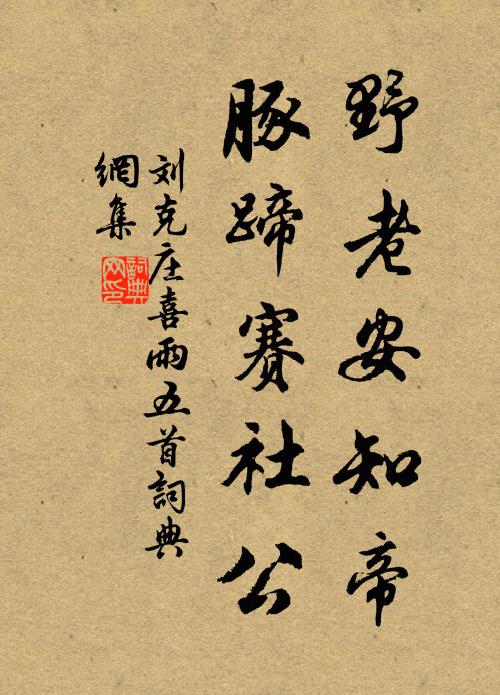 野老安知帝
豚蹄赛社公
刘克庄喜雨五首詞典
網集
詞典
网印